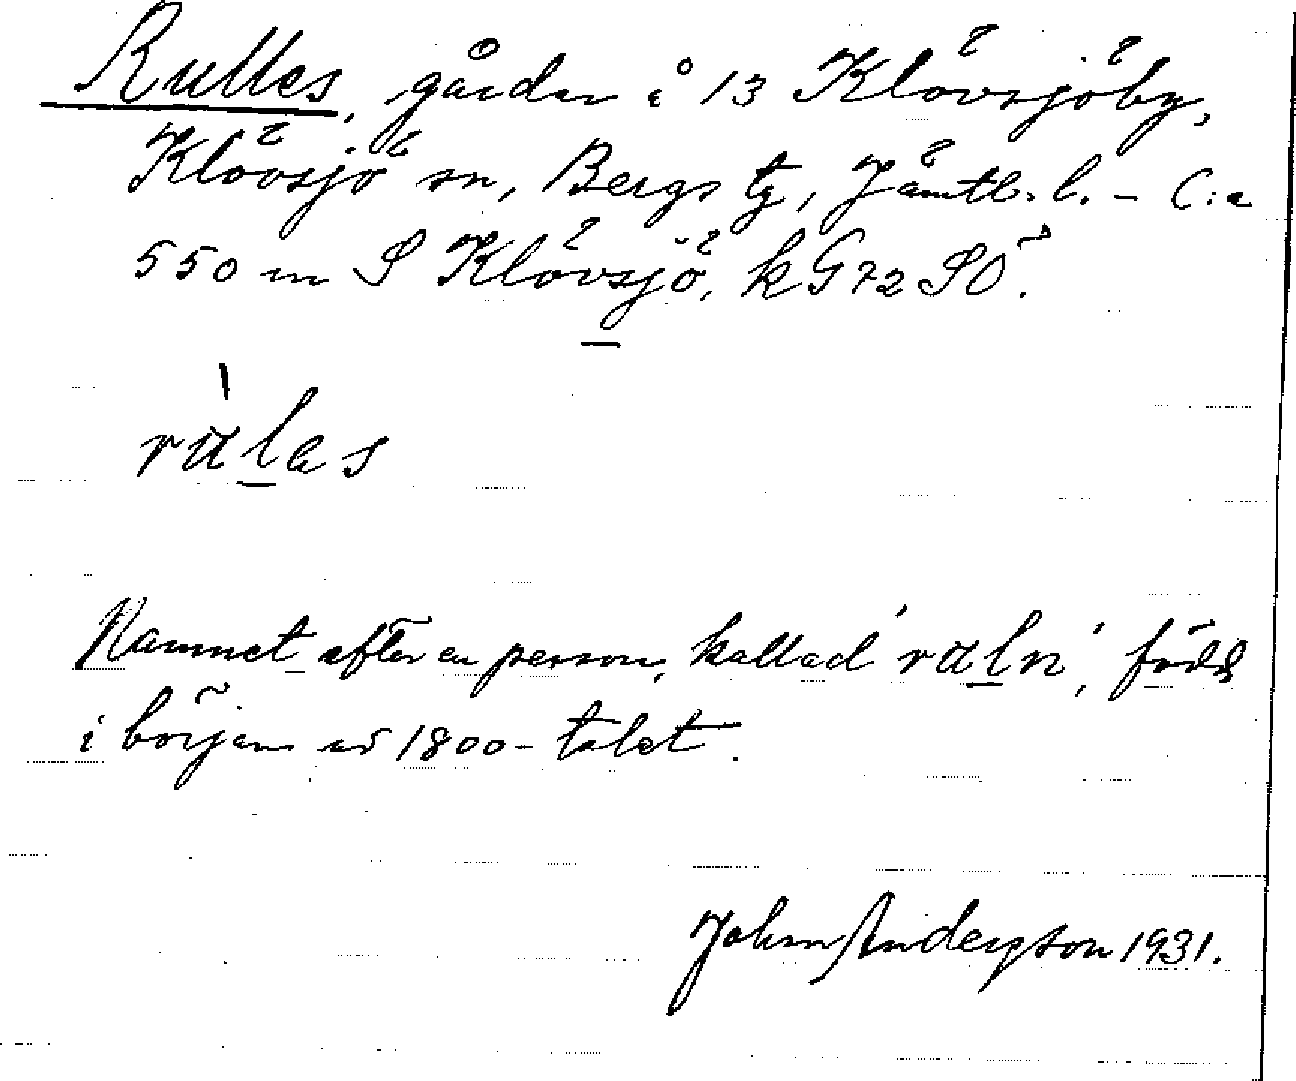 Rulles, gårdar å 13 Klövsjöby,
Klövsjö sn, Bergs tg, Jämtl. l. - C:a
550 m S Klövsjö, kG72SÖ.
ràlas
Namnet efter en person, kallad 'raln', född
i början av 1800-talet.
John Anderson 1931.